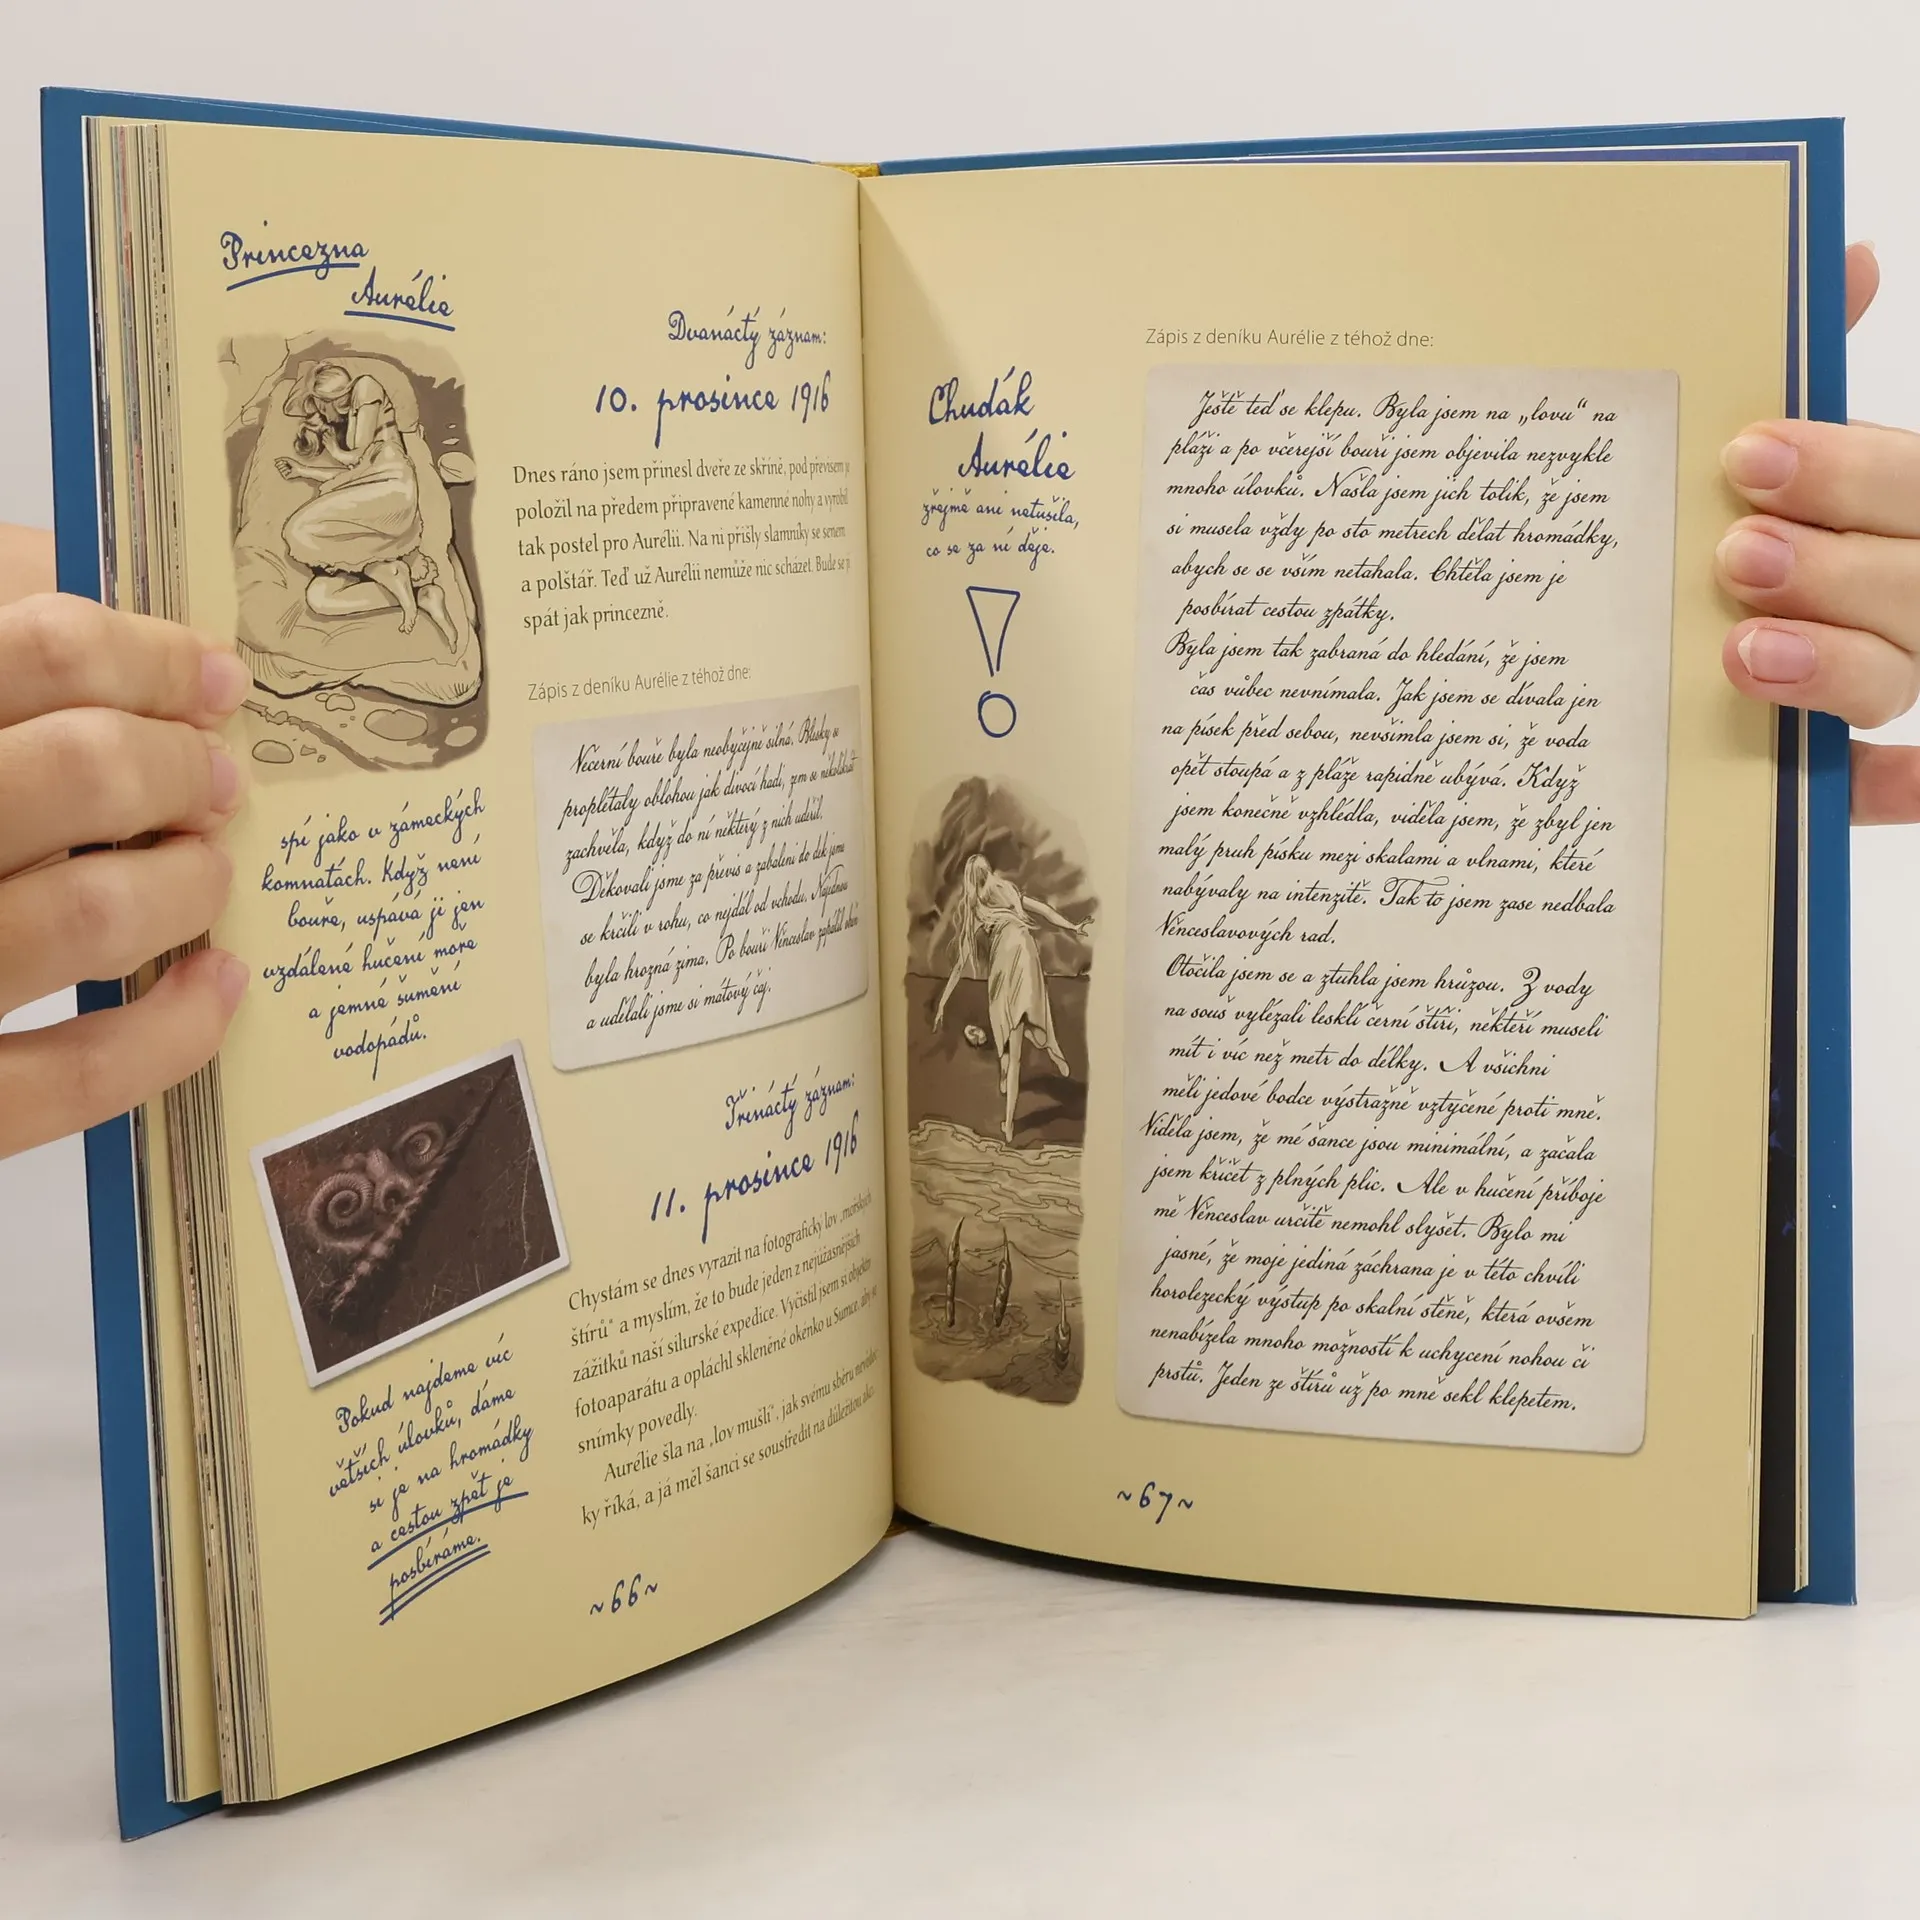 Princezna
Aurélie
spí jako v zámeckých
komnatách. Když není
bouře, uspává ji jen
vzdálené hučení moře
a jemné šumění
vodopádů.
Pokud najdeme víc
větších úlovků, dáme
si je na hromádky
a cestou zpět je
posbíráme.
Dvanáctý záznam:
10. prosince 1916
Dnes ráno jsem přinesl dveře ze skříně, pod převisem je
položil na předem připravené kamenné nohy a vyrobil
tak postel pro Aurélii. Na ni přišly slamníky se senem
a polštář. Teď už Aurélii nemůže nic scházet. Bude se jí
spát jak princezně.
Zápis z deníku Aurélie z téhož dne:
Večerní bouře byla neobyčejně silná. Blesky se
proplétaly oblohou jak divocí hadi, zem se několikrát
zachvěla, když do ní některý z nich udeřil.
Děkovali jsme za převis a zabaleni do dek jsme
se krčili v rohu, co nejdál od vchodu. Najednou
byla hrozná zima. Po bouři Věnceslav zapálil oheň
a udělali jsme si mátový čaj.
Třináctý záznam:
11. prosince 1916
Chystám se dnes vyrazit na fotografický lov „mořských
štírů“ a myslím, že to bude jeden z nejúžasnějších
zážitků naší silurské expedice. Vyčistil jsem si objektiv
fotoaparátu a opláchl skleněné okénko u Sumce, aby se
snímky povedly.
Aurélie šla na „lov mušlí“, jak svému sběru
ky říká, a já měl šanci se soustředit na důležitou akci.
~66~
Chudák
Aurélie
zřejmě ani netušila,
co se za ní děje.
!
Zápis z deníku Aurélie z téhož dne:
Ještě teď se klepu. Byla jsem na „lovu“ na
pláži a po včerejší bouři jsem objevila nezvykle
mnoho úlovků. Našla jsem jich tolik, že jsem
si musela vždy po sto metrech dělat hromádky,
abych se se vším netahala. Chtěla jsem je
posbírat cestou zpátky.
Byla jsem tak zabraná do hledání, že jsem
čas vůbec nevnímala. Jak jsem se dívala jen
na písek před sebou, nevšimla jsem si, že voda
opět stoupá a z pláže rapidně ubývá. Když
jsem konečně vzhlédla, viděla jsem, že zbyl jen
malý pruh písku mezi skalami a vlnami, které
nabývaly na intenzitě. Tak to jsem zase nedbala
Věnceslavových rad.
Otočila jsem se a ztuhla jsem hrůzou. Z vody
na souš vylézali lesklí černí štíři, někteří museli
mít i víc než metr do délky. A všichni
měli jedové bodce výstražně vztyčené proti mně.
Viděla jsem, že mé šance jsou minimální, a začala
jsem křičet z plných plic. Ale v hučení příboje
mě Věnceslav určitě nemohl slyšet. Bylo mi
jasné, že moje jediná záchrana je v této chvíli
horolezecký výstup po skalní stěně, která ovšem
nenabízela mnoho možností k uchycení nohou či
prstů. Jeden ze štírů už po mně sekl klepetem.
~67~